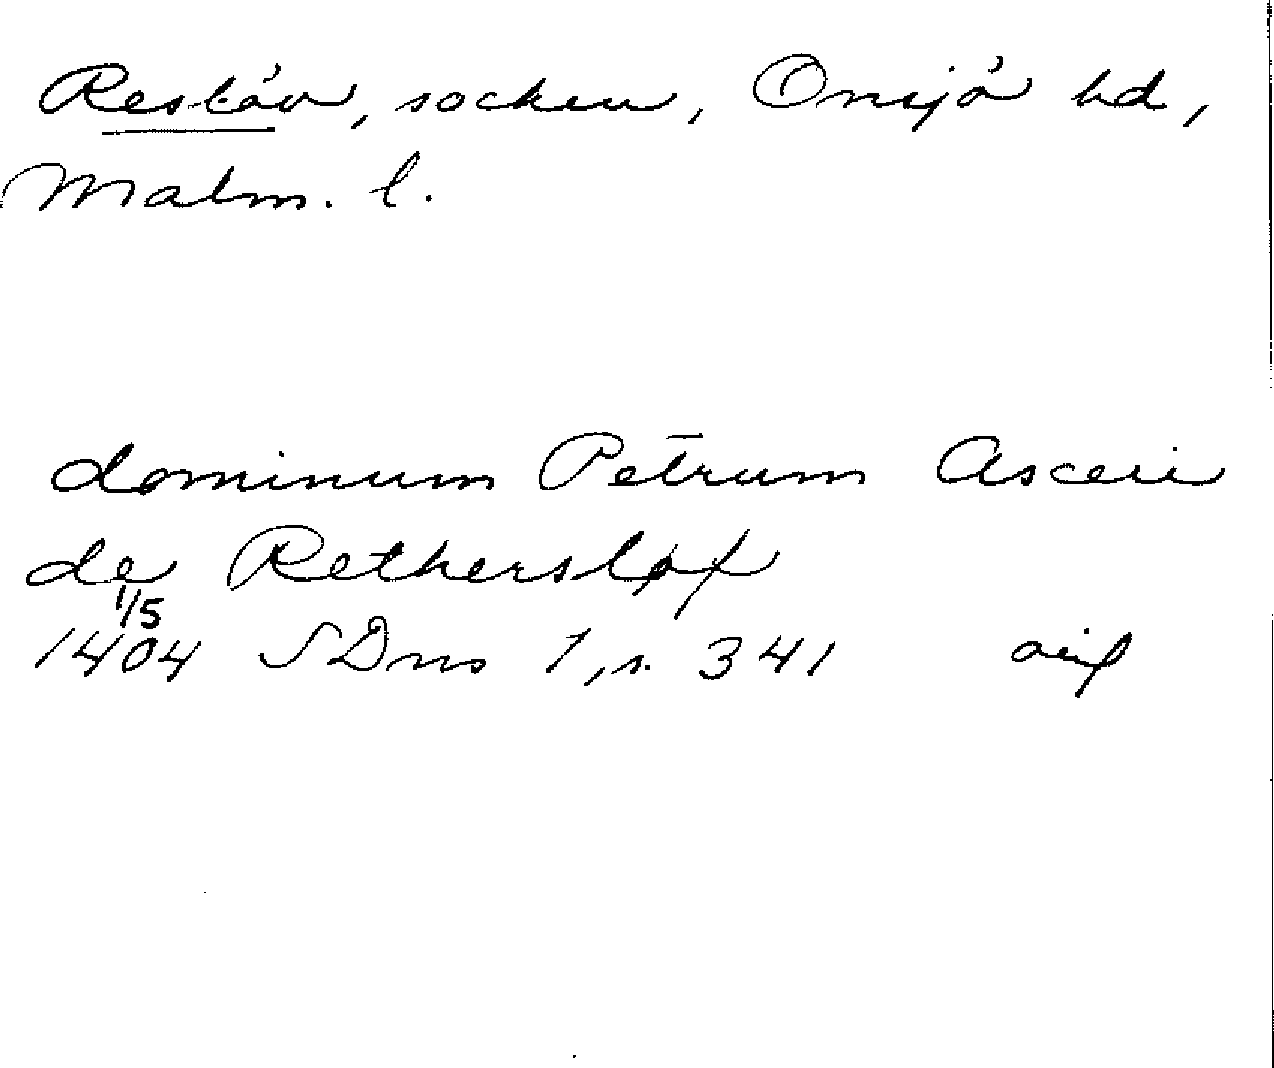 Reslöv, socken, Onsjö hd,
Malm. l.
dominum Petrum Asceri
de Rethersløf
1/5
1404 SDns 1, s. 341